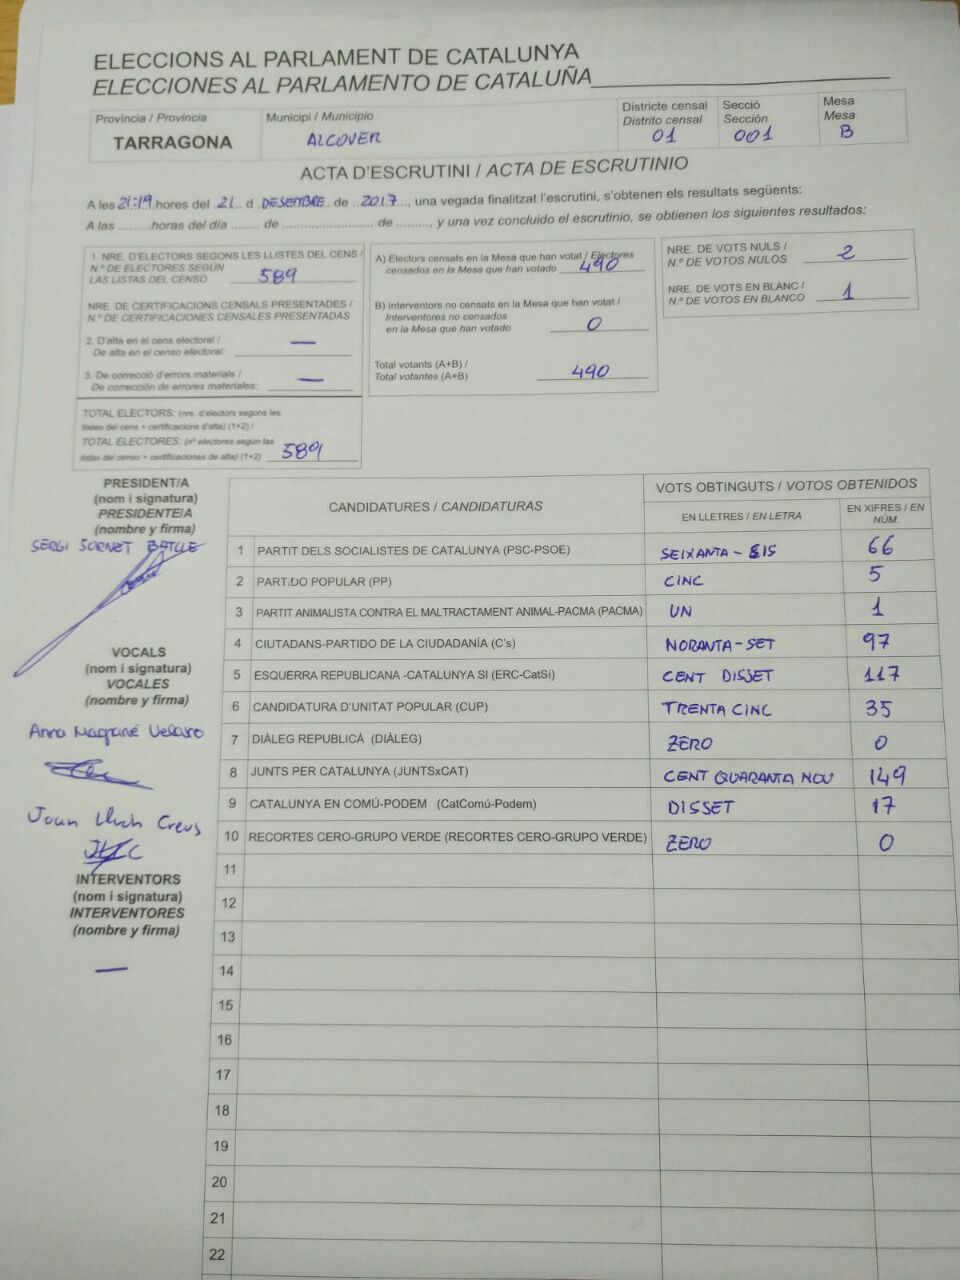 ELECCIONS AL PARLAMENT DE CATALUNYA
ELECCIONES AL PARLAMENTO DE CATALUÑA
Província / Provincia
TARRAGONA
Municipi / Municipio
ALCOVER
Districte censal
Distrito censal
01
Secció
Sección
001
Mesa
Mesa
B
ACTA D'ESCRUTINI / ACTA DE ESCRUTINIO
A les 21:19 hores del 21 d DESEMBRE de 2017, una vegada finalitzat l'escrutini, s'obtenen els resultats següents:
A las ......... horas del día ....... de ........................ de ........., y una vez concluido el escrutinio, se obtienen los siguientes resultados:
1. NRE. D'ELECTORS SEGONS LES LLISTES DEL CENS /
N.º DE ELECTORES SEGÚN
LAS LISTAS DEL CENSO 589
NRE. DE CERTIFICACIONS CENSALS PRESENTADES /
N.º DE CERTIFICACIONES CENSALES PRESENTADAS
2. D'alta en el cens electoral /
De alta en el censo electoral: —
3. De correcció d'errors materials /
De corrección de errores materiales: —
TOTAL ELECTORS: (nre. d'electors segons les
llistes del cens + certificacions d'alta) (1+2) /
TOTAL ELECTORES: (nº electores según las
listas del censo + certificaciones de alta) (1+2) 589
A) Electors censats en la Mesa que han votat / Electores
censados en la Mesa que han votado 490
B) Interventors no censats en la Mesa que han votat /
Interventores no censados
en la Mesa que han votado 0
Total votants (A+B) /
Total votantes (A+B) 490
NRE. DE VOTS NULS /
N.º DE VOTOS NULOS 2
NRE. DE VOTS EN BLANC /
N.º DE VOTOS EN BLANCO 1
PRESIDENT/A
(nom i signatura)
PRESIDENTE/A
(nombre y firma)
SERGI SORNET BATLLE
VOCALS
(nom i signatura)
VOCALES
(nombre y firma)
Anna Magrané Velasco
Joan Lluch Creus
INTERVENTORS
(nom i signatura)
INTERVENTORES
(nombre y firma)
—
CANDIDATURES / CANDIDATURAS
VOTS OBTINGUTS / VOTOS OBTENIDOS
EN LLETRES / EN LETRA
EN XIFRES / EN NÚM.
1 PARTIT DELS SOCIALISTES DE CATALUNYA (PSC-PSOE) SEIXANTA-SIS 66
2 PARTIDO POPULAR (PP) CINC 5
3 PARTIT ANIMALISTA CONTRA EL MALTRACTAMENT ANIMAL-PACMA (PACMA) UN 1
4 CIUTADANS-PARTIDO DE LA CIUDADANÍA (C's) NORANTA-SET 97
5 ESQUERRA REPUBLICANA -CATALUNYA SI (ERC-CatSí) CENT DISSET 117
6 CANDIDATURA D'UNITAT POPULAR (CUP) TRENTA CINC 35
7 DIÀLEG REPUBLICÀ (DIÀLEG) ZERO 0
8 JUNTS PER CATALUNYA (JUNTSxCAT) CENT QUARANTA NOU 149
9 CATALUNYA EN COMÚ-PODEM (CatComú-Podem) DISSET 17
10 RECORTES CERO-GRUPO VERDE (RECORTES CERO-GRUPO VERDE) ZERO 0
11
12
13
14
15
16
17
18
19
20
21
22